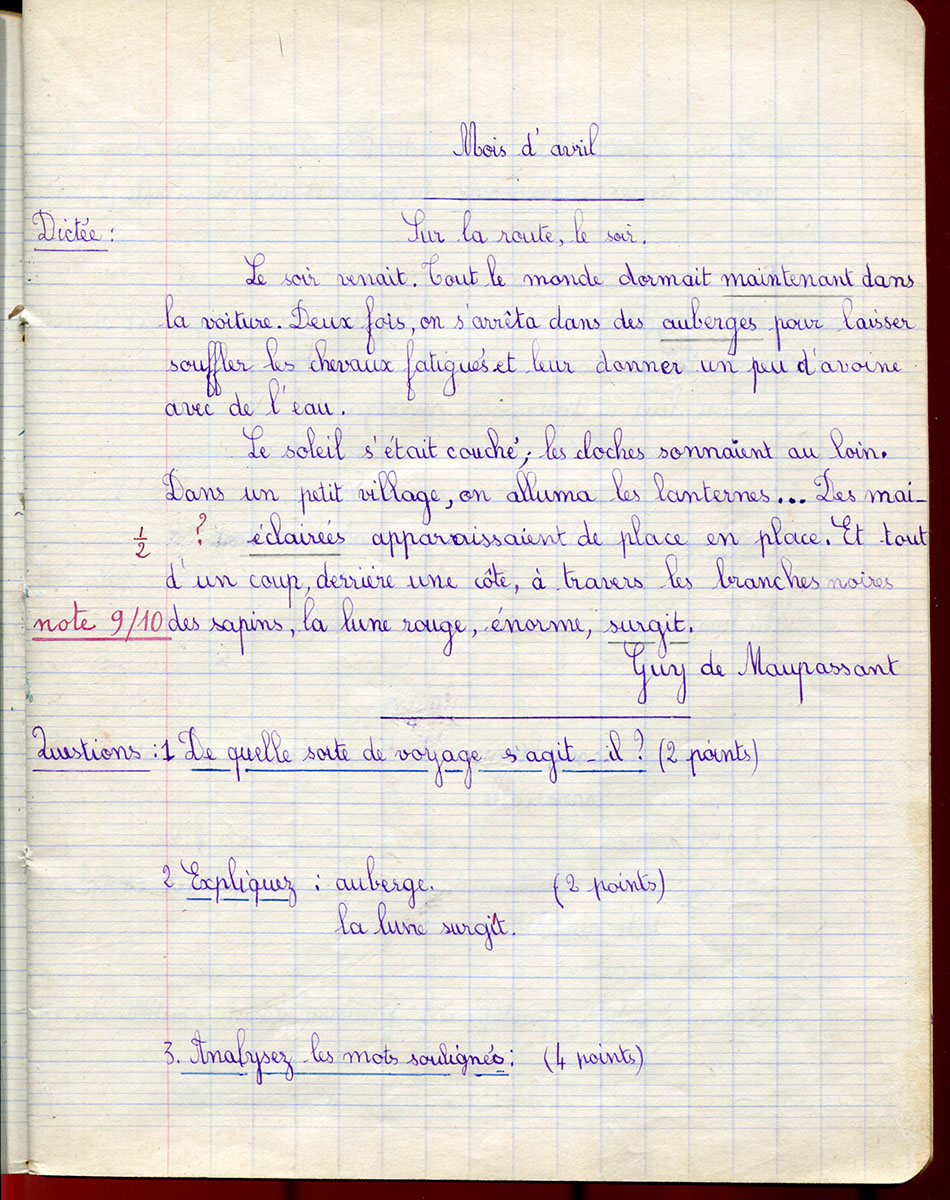 Mois d'avril
Dictée : Sur la route, le soir.
Le soir venait. Tout le monde dormait maintenant dans
la voiture. Deux fois, on s'arrêta dans des auberges pour laisser
souffler les chevaux fatigués et leur donner un peu d'avoine
avec de l'eau.
Le soleil s'était couché ; les cloches sonnaient au loin.
Dans un petit village, on alluma les lanternes... Des mai-
1/2 ? éclairées apparaissaient de place en place. Et tout
d'un coup, derrière une côte, à travers les branches noires
note 9/10 des sapins, la lune rouge, énorme, surgit.
Guy de Maupassant
Questions : 1 De quelle sorte de voyage s'agit-il ? (2 points)
2 Expliquez : auberge. (2 points)
la lune surgit.
3. Analysez les mots soulignés : (4 points)